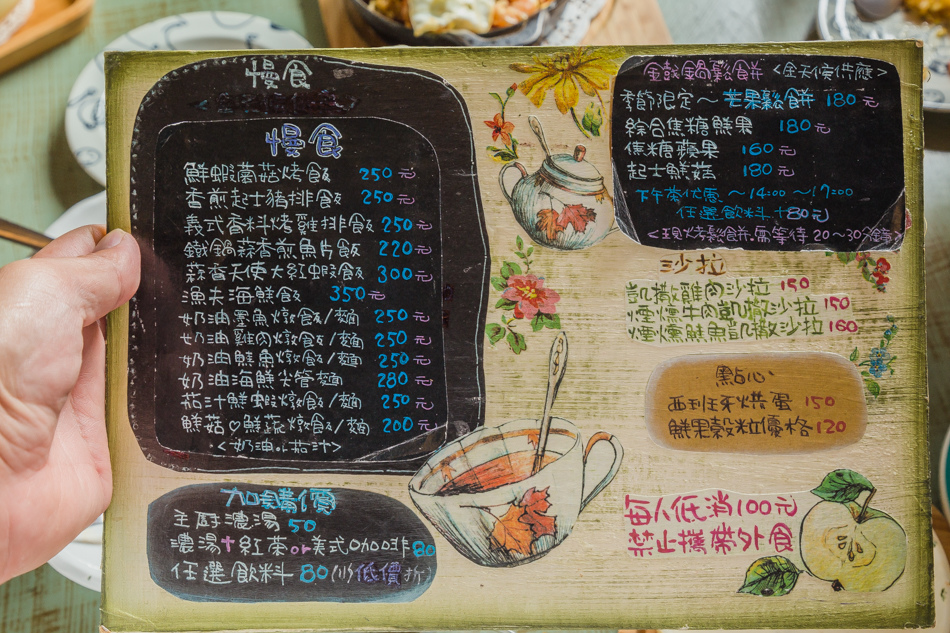 慢食
慢食
鮮蝦蘑菇烤飯 250元
香煎起士豬排飯 250元
義式香料烤雞排飯 250元
鐵鍋蒜香煎魚片飯 220元
蒜香天使大紅蝦飯 300元
漁夫海鮮飯 350元
奶油墨魚燉飯/麵 250元
奶油雞肉燉飯/麵 250元
奶油鮭魚燉飯/麵 250元
奶油海鮮尖管麵 280元
茄汁鮮蝦燉飯/麵 250元
鮮菇♡鮮蔬燉飯/麵 200元
<奶油or茄汁>
加購價
主廚濃湯 50
濃湯+紅茶or美式咖啡 80
任選飲料 80(以低價折)
鑄鍋鬆餅 <全天候供應>
季節限定~芒果鬆餅 180元
綜合焦糖鮮果 180元
焦糖蘋果 160元
起士鮮菇 180元
下午茶優惠 ~14:00~17:00
任選飲料+80元
<現烤鬆餅.需等待20~30分鐘>
沙拉
凱撒雞肉沙拉 150
煙燻牛肉凱撒沙拉 150
煙燻鮭魚凱撒沙拉 160
點心
西班牙烘蛋 150
鮮果穀粒優格 120
每人低消100元
禁止攜帶外食